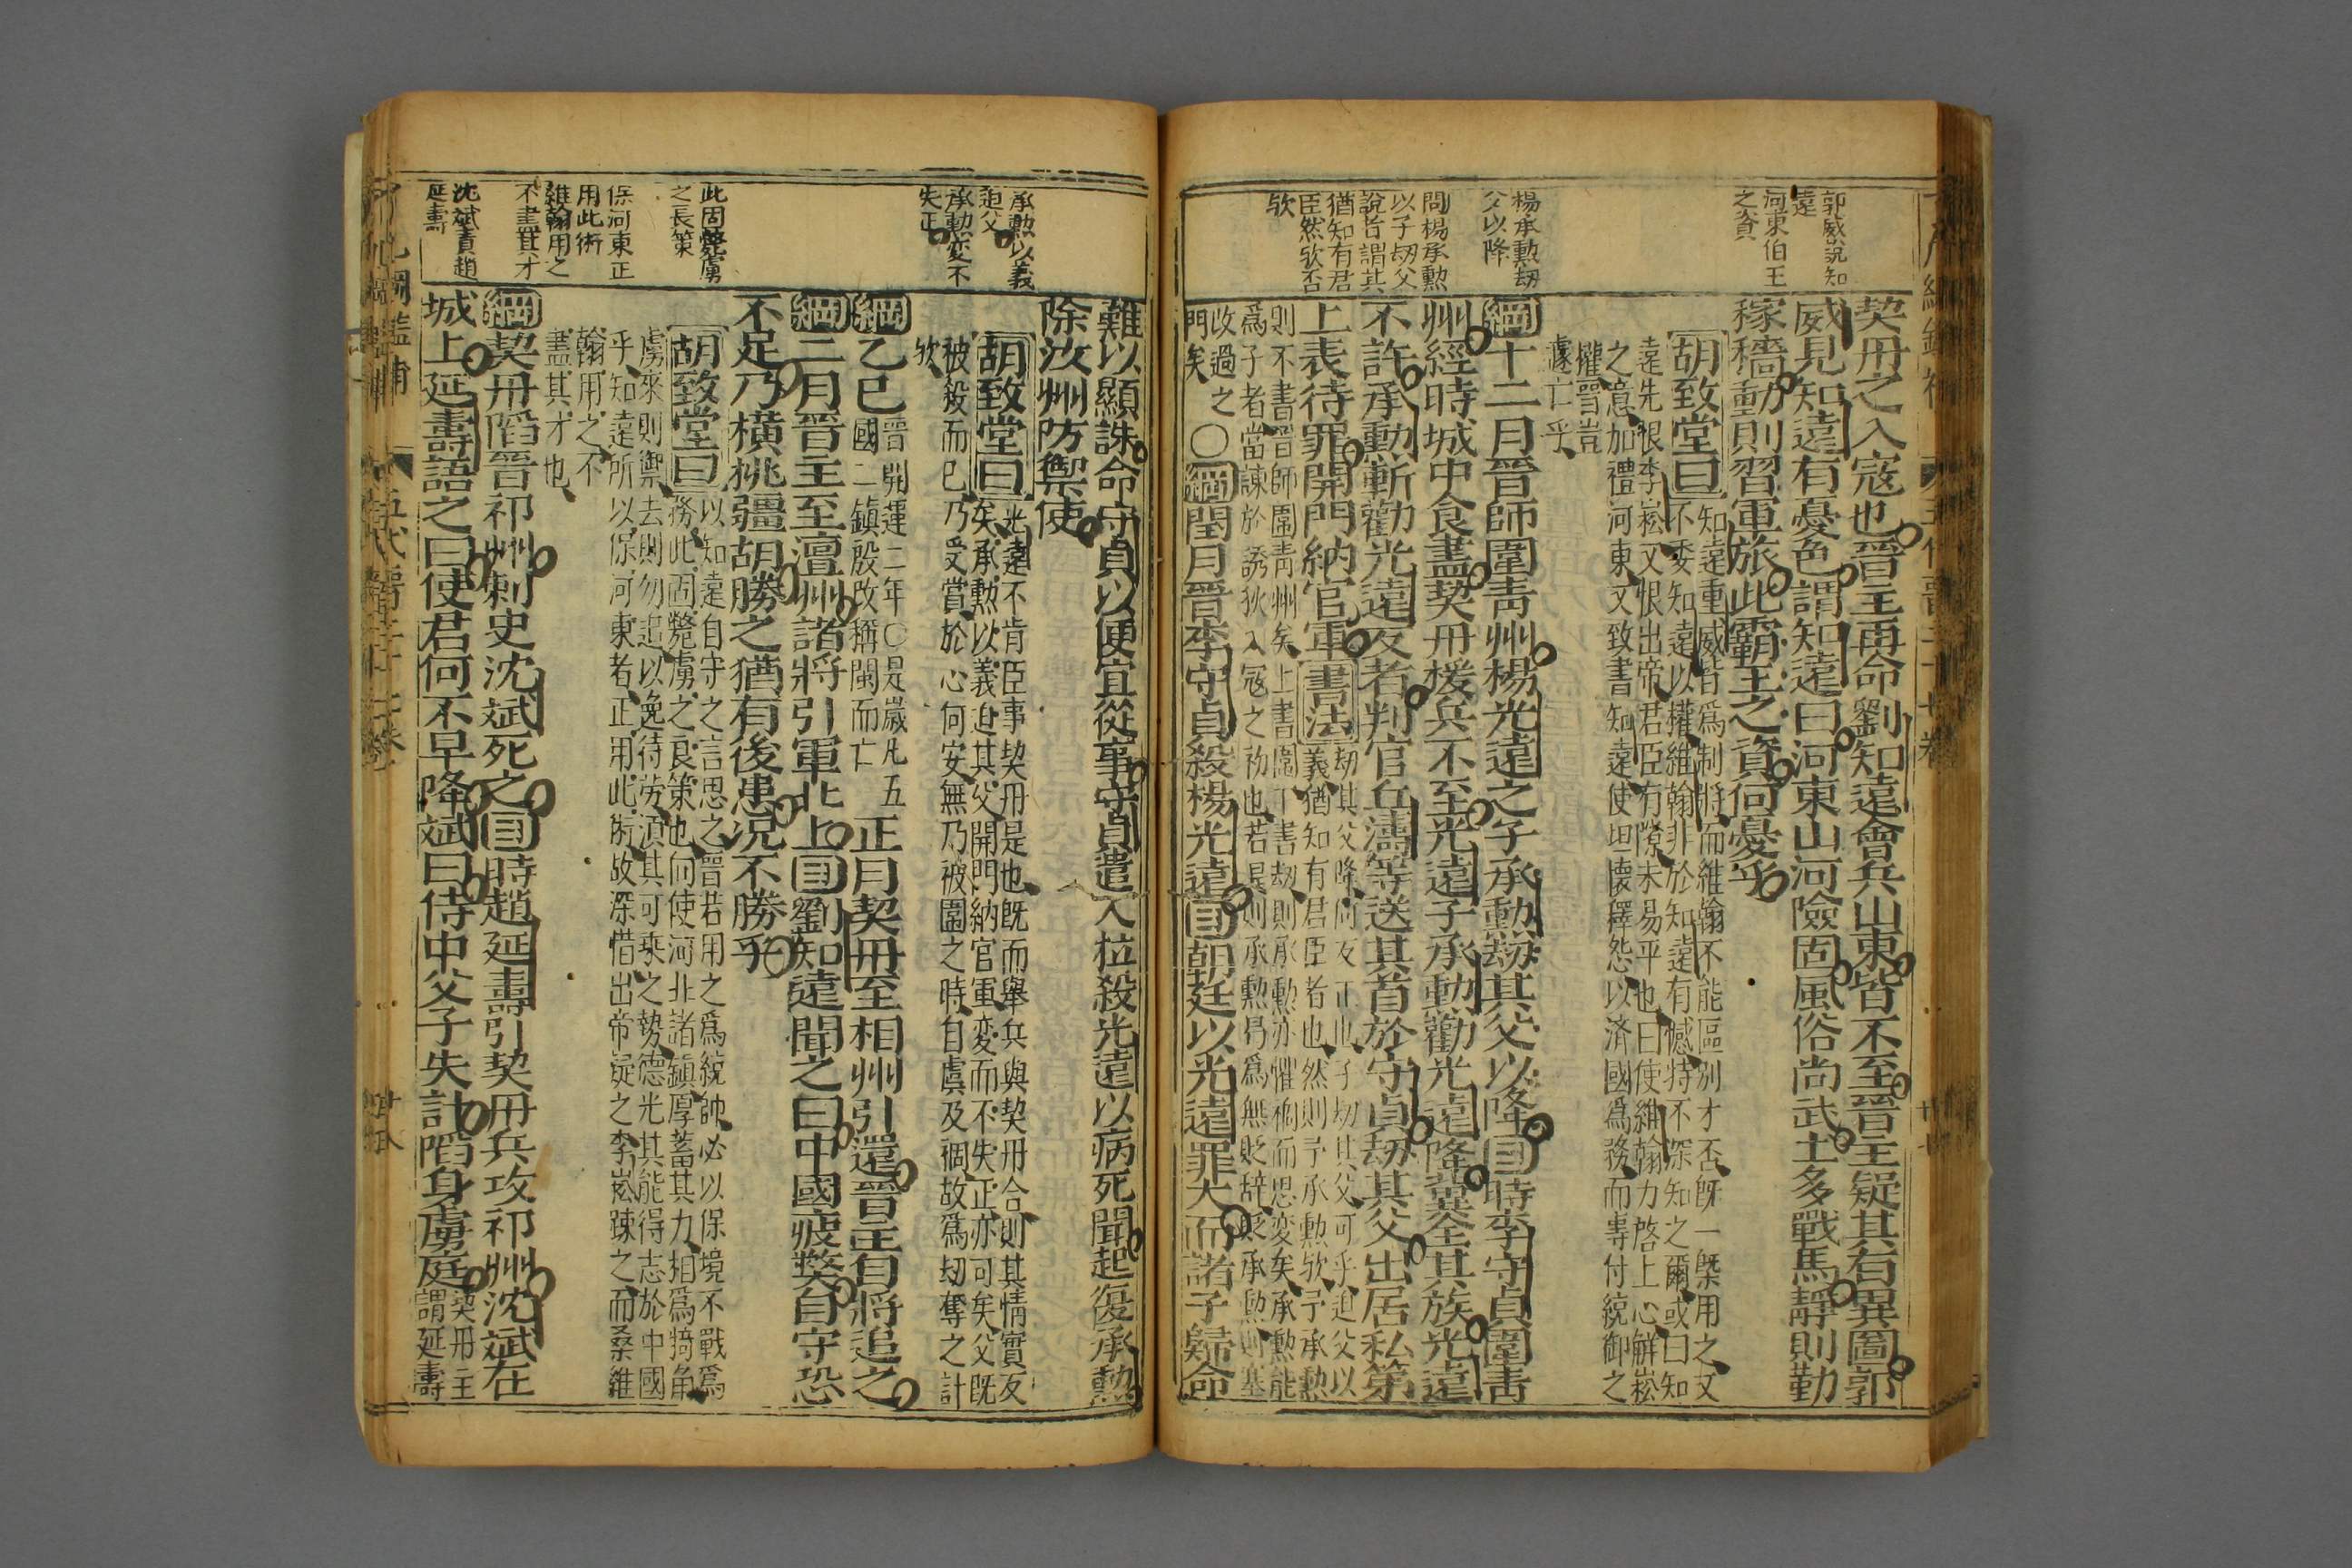 郭威說知
遠
河東伯王
之資
楊承勲刼
父以降
問楊承勲
以子刼父
說者謂其
猶知有君
臣然欤否
欤
契丹之入寇也晋主再命劉知遠會兵山東皆不至晋主疑其有異圖郭
威見知遠有憂色謂知遠曰河東山河險固風俗尚武土多戰馬靜則勤
稼穡動則習軍旅此霸王之資何憂乎
胡致堂曰知遠重威皆爲制將而維翰不能區别才否旣一槩用之又
不委知遠以權維翰非於知遠有憾特不深知之爾或曰知
遠先恨李崧又恨出帝君臣有隙未易平也曰使維翰力啓上心解崧
之意加禮河東又致書知遠使坦懷釋怨以濟國爲務而専付綂御之
權晋豈
遽亡乎
綱十二月晋師圍靑州楊光遠之子承勲刼其父以降目時李守貞圍靑
州經時城中食盡契丹援兵不至光遠子承勲勸光遠降冀全其族光遠
不許承勲斬勸光遠反者判官丘濤等送其首於守貞刼其父出居私第
上表待罪開門納官軍書法刼其父降何反正也子刼其父可乎迫父以
義猶知有君臣者也然則予承勲欤予承勲
則不書晋師圍青州矣上書圍下書刼則承勲亦懼禍而思変矣承勲能
爲子者當諫於誘狄入冦之初也若是則承勲曷爲無貶辞貶承勲則塞
改過之
門矣○綱閏月晋李守貞殺楊光遠目朝廷以光遠罪大而諸子歸命
承勲以義
迫父
承勲変不
失正
此固斃虜
之長策
保河東正
用此術
維翰用之
不盡其才
沈斌責趙
延壽
難以顯誅命守貞以便宜從事守貞遣人拉殺光遠以病死聞起復承勲
除汝州防禦使
胡致堂曰光遠不肯臣事契丹是也旣而舉兵與契丹合則其情實反
矣承勲以義迫其父開門納官軍変而不失正亦可矣父旣
被殺而已乃受賞於心何安無乃被圍之時自虞及禍故爲刼奪之計
欤
綱乙巳晋開運二年○是歲凡五
國二鎮殷改稱閩而亡正月契丹至相州引還晋主自將追之
綱二月晋主至澶州諸將引軍北上目劉知遠聞之曰中國疲獘自守恐
不足乃橫挑彊胡勝之猶有後患况不勝乎
胡致堂曰以知遠自守之言思之晋若用之爲綂帥必以保境不戰爲
務此固斃虜之良策也向使河北諸鎮厚蓄其力相爲犄角
虜來則禦去則勿追以逸待劳湏其可乘之勢德光其能得志於中國
乎知遠所以保河東者正用此術故深惜出帝疑之李崧踈之而桑維
翰用之不
盡其才也
綱契丹䧟晋祁州刺史沈斌死之目時趙延壽引契丹兵攻祁州沈斌在
城上延壽語之曰使君何不早降斌曰侍中父子失計䧟身虜庭契丹主
謂延壽
五代晋
廿八